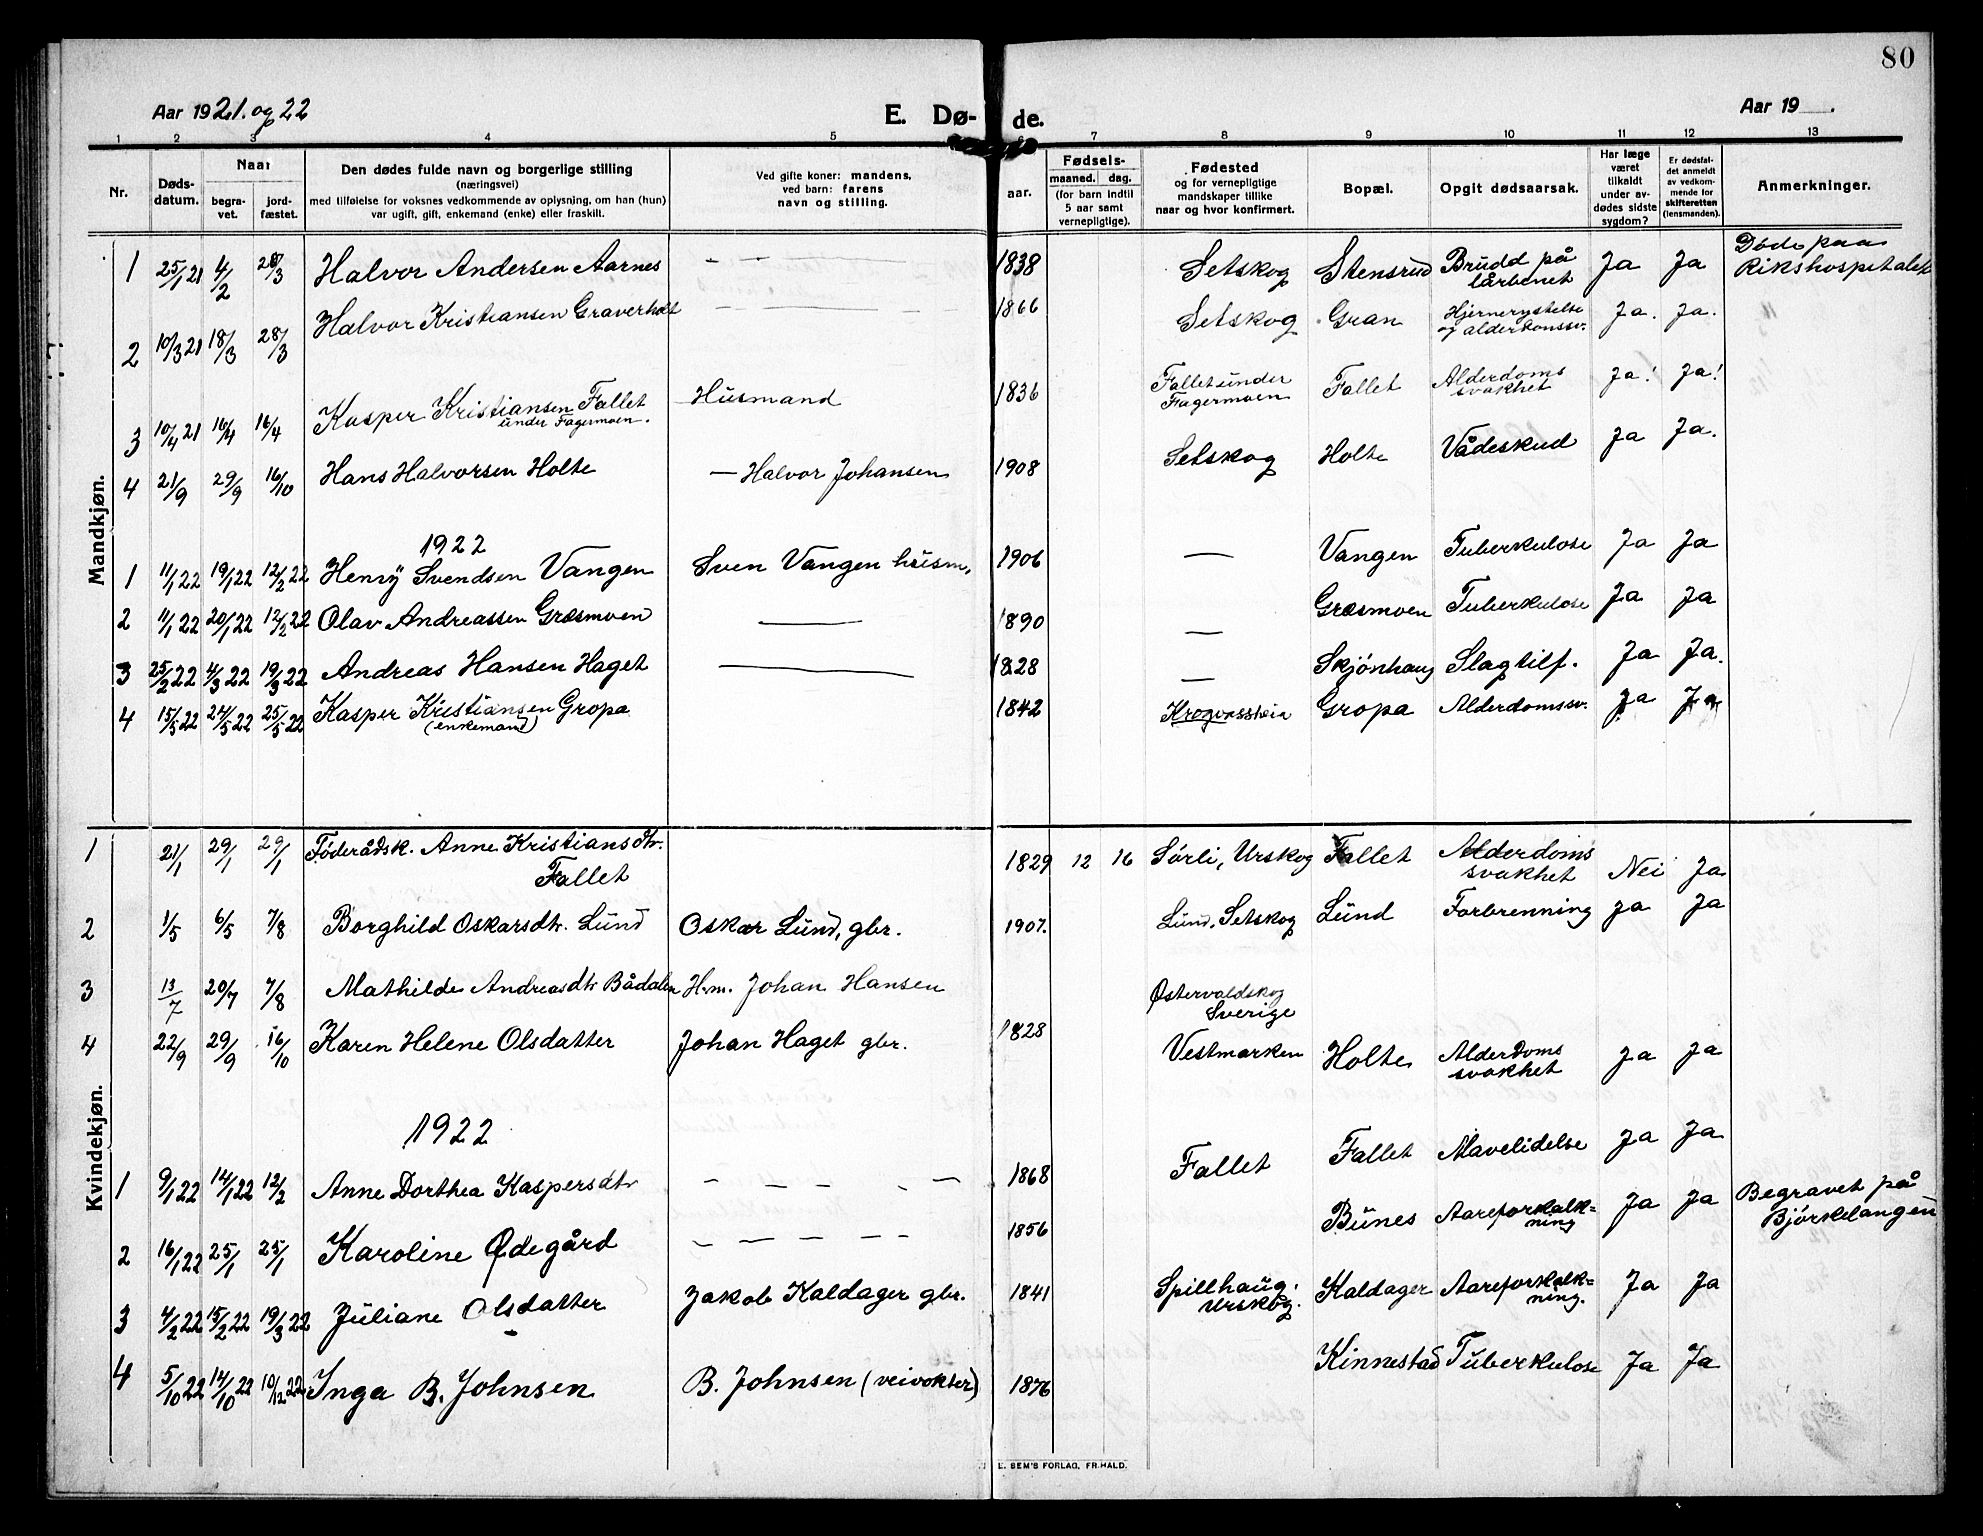 80
Aar 1921. og 22
E. Dø-
de.
Aar 19 .
1 2 3 4 5 6 7 8 9 10 11 12 13
Nr.
Døds-
datum.
Naar
begra-
vet.
jord-
fæstet.
Den dødes fulde navn og borgerlige stilling
(næringsvei)
med tilføielse for voksnes vedkommende av oplysning, om han (hun)
var ugift, gift, enkemand (enke) eller fraskilt.
Ved gifte koner: mandens,
ved barn: farens
navn og stilling.
aar.
Fødsels-
maaned. dag.
(for barn indtil
5 aar samt
vernepligtige).
Fødested
og for vernepligtige
mandskaper tillike
naar og hvor konfirmert.
Bopæl.
Opgit dødsaarsak.
Har læge
været
tilkaldt
under av-
dødes sidste
sygdom?
Er dødsfal-
det anmeldt
av vedkom-
mende for
skifteretten
(lensmanden).
Anmerkninger.
Mandkjøn.
1 25/1 21 4/2 28/3 Halvor Andersen Aarnes — — 1838 Setskog Stensrud Brudd på lårbenet Ja Ja Døde paa Rikshospitalet
2 10/3 21 18/3 28/3 Halvor Kristiansen Graverholt — 1866 Setskog Gran Hjernerystelse og alderdomssv. Ja. Ja.
3 10/4 21 16/4 16/4 Kasper Kristiansen Fallet under Fagermoen. Husmand 1836 Fallet under Fagermoen Fallet Alderdoms svakhet Ja! Ja!
4 21/9 29/9 16/10 Hans Halvorsen Holte — Halvor Johansen 1908 Setskog Holte Vådeskud Ja Ja.
1922
1 11/1 22 19/1 22 12/2 22 Henry Svendsen Vangen Sven Vangen husm. 1906 — Vangen Tuberkulose Ja Ja
2 11/1 22 20/1 22 12/2 22 Olav Andreassen Græsmoen — 1890 — Græsmoen Tuberkulose Ja Ja
3 25/2 22 4/3 22 19/3 22 Andreas Hansen Haget — 1828 — Skjónhaug Slagtilf. Ja Ja.
4 15/5 22 24/5 22 25/5 22 Kasper Kristiansen Gropa (enkemand) 1842 Krogvassheia Gropa Alderdomssv. Ja Ja
Kvindekjøn.
1 21/1 29/1 29/1 Føderådsk. Anne Kristiansdtr. Fallet 1829 12 16 Sørli, Urskog Fallet Alderdoms svakhet Nei Ja
2 1/5 6/5 7/8 Borghild Oskarsdtr. Lund Oskar Lund, gbr. 1907. Lund, Setskog Lund Forbrenning Ja Ja
3 13/7 20/7 7/8 Mathilde Andreasdtr Bådalen H.m. Johan Hansen Østervaldskog Sverige
4 22/9 29/9 16/10 Karen Helene Olsdatter Johan Haget gbr. 1828 Vestmarken Holte Alderdoms svakhet Ja Ja
1922
1 9/1 22 14/1 22 12/2 Anne Dorthea Kaspersdtr — — — — 1868 Fallet Fallet Mavelidelse Ja Ja
2 16/1 22 25/1 25/1 Karoline Ødegård — — — — — 1856 Bunes Aareforkalk= ning Ja Ja Begravet på Bjørkelangen
3 4/2 22 15/2 22 19/3 22 Juliane Olsdatter Jakob Kaldager gbr. 1841 Spillhaug. Urskog. Kaldager Aareforkalk= ning. Ja Ja
4 5/10 22 14/10 22 10/12 22 Inga B. Johnsen B. Johnsen (veivokter) 1876 Kinnestad Tuberkulose Ja Ja
E. SEM'S FORLAG, FR.HALD.